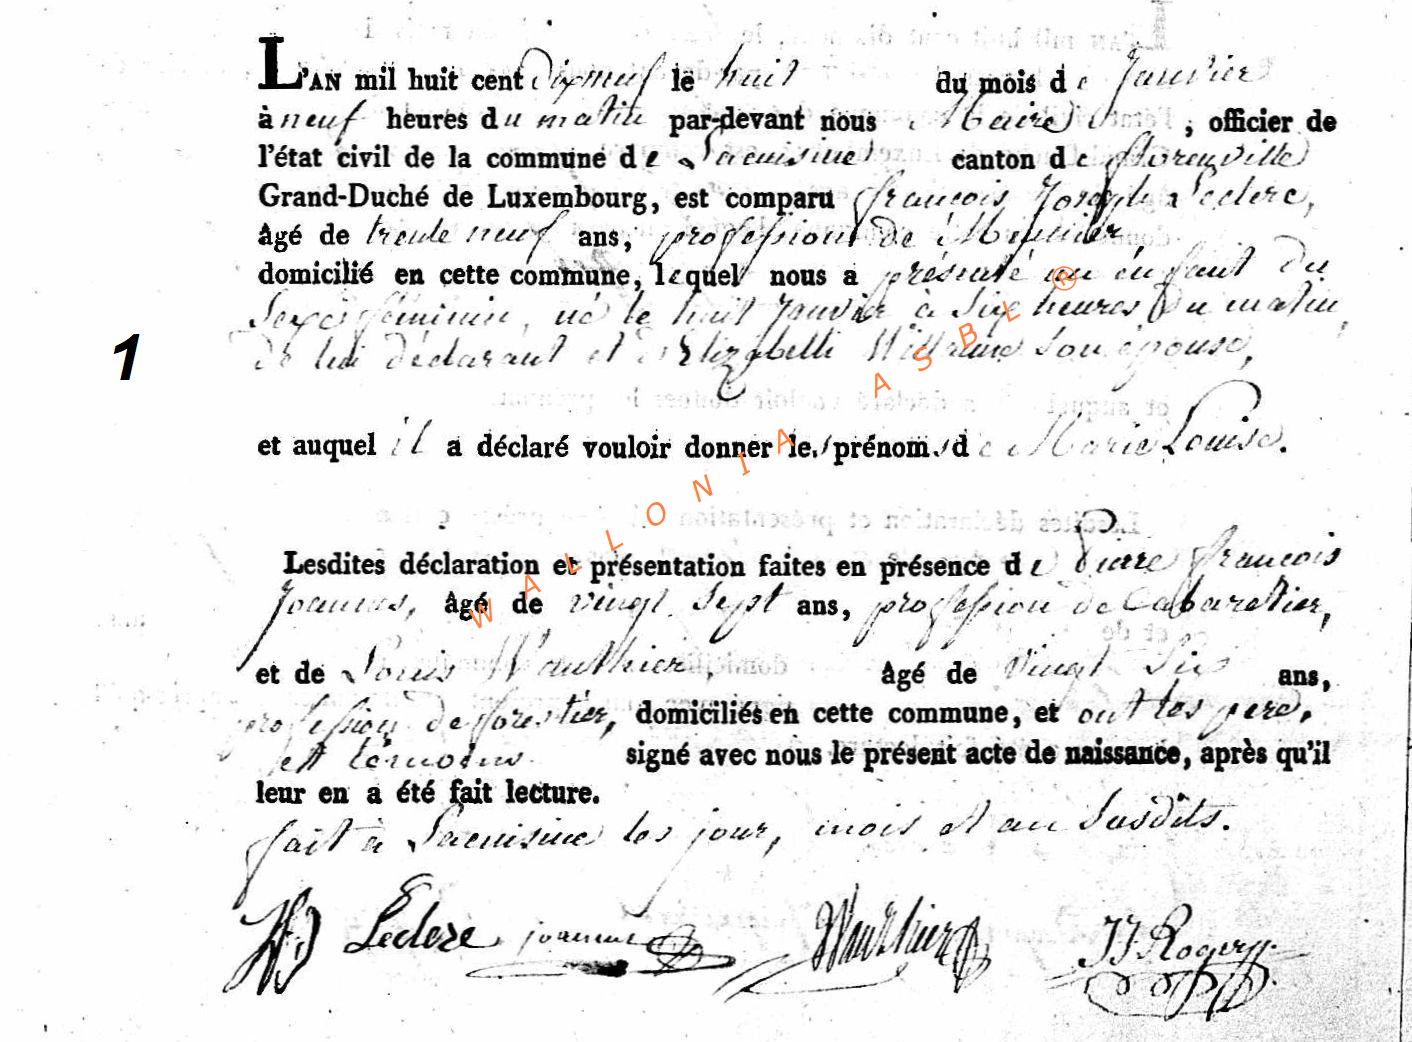 L'AN mil huit cent Dixneuf le huit du mois de Janvier
à neuf heures du matin par-devant nous Maire , officier de
l'état civil de la commune de Lacuisine canton de florenville
Grand-Duché de Luxembourg, est comparu françois Joseph Leclere,
âgé de trente neuf ans, profession de Meunier,
domicilié en cette commune, lequel nous a présenté un enfant du
Sexe féminin, né le huit Janvier à Six heures Du matin,
de lui déclarant et d'Elizabeth son épouse,
1
et auquel il a déclaré vouloir donner les prénoms de Marie Louise.
Lesdites déclaration et présentation faites en présence de Pierre françois
Joannes, âgé de vingt Sept ans, profession de Cabaretier,
et de Louis Wauthier, âgé de Vingt Six ans,
profession de forestier, domiciliés en cette commune, et ont les pere,
et témoins signé avec nous le présent acte de naissance, après qu'il
leur en a été fait lecture.
fait à Lacuisine les jour, mois et an Susdits.
Leclere joannes Wauthier JJ Rogery
WALLONIA ASBL ®